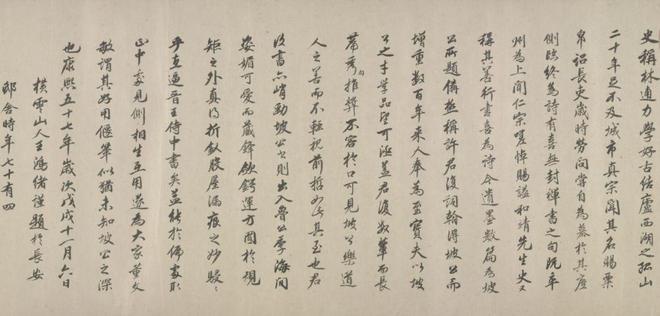 史稱林逋力學好古結廬西湖之孤山
二十年足不及城市真宗聞其名賜粟
帛詔長吏歲時勞問嘗自為墓於其廬
側臨終為詩有喜無封禪書之句既卒
州為上聞仁宗嗟悼賜諡和靖先生史又
稱其善行書喜為詩今遺墨數篇為坡
公所題備極稱許君復詞翰得坡公而
增重數百年來人奉為至寶夫以坡
公之才學品望可涵蓋君復數輩而長
蒂秀句推獎不容於口可見坡公樂道
人之善而不輕視前哲如此其至也君
復書亦峭勁坡公書則出入魯公季海間
姿媚可愛而藏鋒斂鍔運方圓於規
矩之外真得折釵股屋漏痕之妙駸駸
乎直逼晉王侍中書矣蓋能於佛家取
正中矣見側相生互用遂為大家董文
敏謂其好用偃筆似猶未知坡公之深
也康熙五十七年歲次戊戌十一月六日
橫雲山人王鴻緒謹題於長安
邸舍時年七十有四